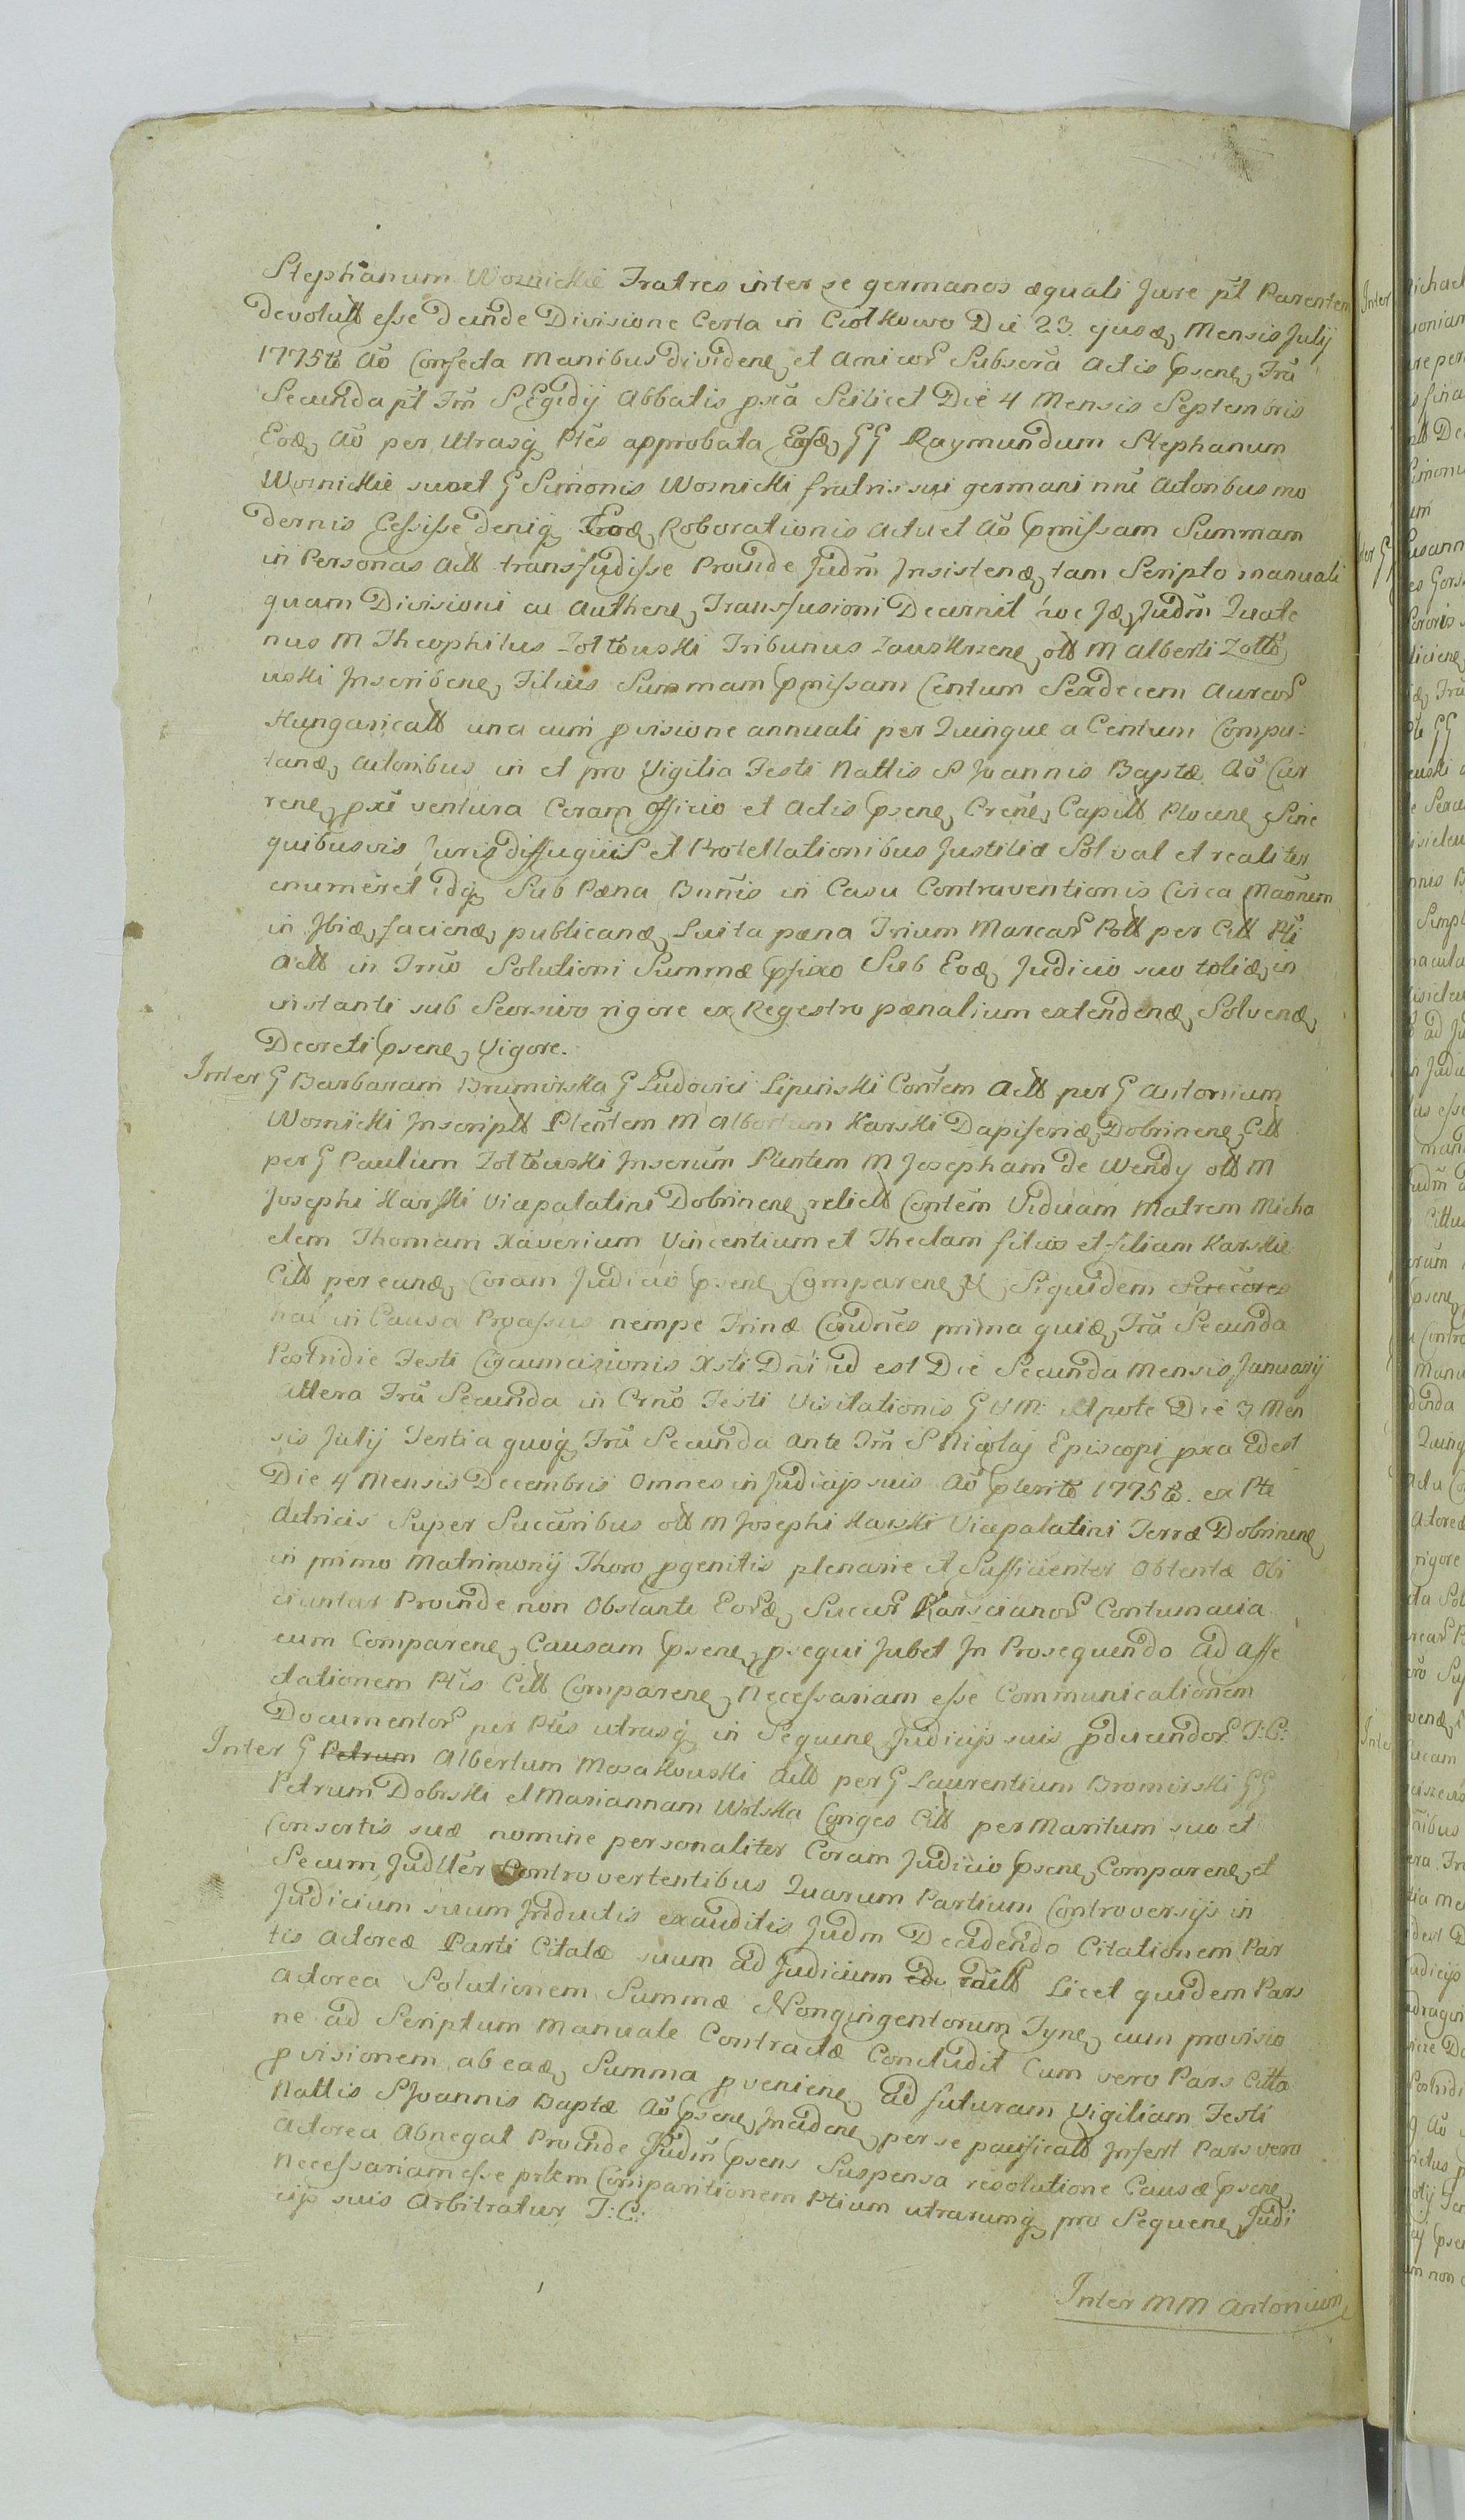 Stephanum Woznickie Fratres inter se germanos æquali Jure pt Parentem
devolutt esse deinde Divisione Certa in Ciołkowo Die 23. ejusd, Mensis Julij
1775ti Ao Confecta Manibus dividen, et Amicor Subscra Actis psen, Fra
Secunda pt Fm S Egidij Abbatis pxa Scilicet Die 4 Mensis Septembris
Eod, Ao per Utrasq Ptes approbata Eosd, GG Raymundum Stephanum
Woznickie suo et G Simonis Woznicki fratris sui germani nne Actoribus mo
dernis Cessisse deniq Eod, Roborationis Actu et Ao pmissam Summam
in Personas Actt transfudisse Proinde Judm Insistend, tam Scripto manuali
quam Divisioni ac Authen, Transfusioni Decernit hoc Id, Judm Quate
nus M Theophilus Zołtowski Tribunus Zawskrzen, olt M Alberti Zołto
wski Inscriben, Filius Summam pmissam Centum Sexdecem Aureor
Hungaricalt una cum pvisione annuali per Quinque a Centum Compu:
tand, Actoribus in et pro Vigilia Festi Nattis S Joannis Baptæ Ao Cur
ren, pxe ventura Coram Officio et Actis psen, Cren, Capitt Plocen, Sine
quibusvis Juris diffugiis et Protellationibus Justitiæ Solvat et realiter
enumeret idq Sub Pæna Bannis in Casu Contraventionis Circa Maonem
in Ibid, faciend, publicand, Luita pæna Trium Marcar Poll per Citt Pti
Actt in Trno Solutioni Summæ pfixo Sub Eod, Judicio suo tolid, in
instanti sub Seorsivo rigore ex Regestro pænalium extendend, Solvend,
Decreti psen, Vigore.
Inter G Barbaram Brumirska G Ludovici Lipinski Contem Actt per G Antonium
Woznicki Inscriptt Pletentem M Albertum Karski Dapiferid, Dobrinen, Citt
per G Paulum Zołtowski Inscrum Pletentem M Josepham de Wendy olt M
Josephi Karski Vicepalatini Dobrinen, relictt Contem Viduam Matrem Micha
elem Thomam Xaverium Vincentium et Theclam filios et filiam Karskie
Citt per eund, Coram Judicio psen, Comparen, Siquidem Succores
hac in Causa Processus nempe Trinæ Condnes prima quid, Fra Secunda
Postridie Festi Circumcizionis Xsti Dni id est Die Secunda Mensis Januarij
Altera Fra Secunda in Crno Festi Visitationis G V M: Utpote Die 3 Men
sis Julij Tertia quoq Fra Secunda ante Fm S Nicolaj Episcopi pxa Id est
Die 4 Mensis Decembris Omnes in Judicijs suis Ao pterito 1775to. ex Pte
Actricis Super Succoribus olt M Josephi Karski Vicepalatini Terræ Dobrinen,
in primo Matrimonij Thoro pgenitis plenarie et Sufficienter Obtentæ Obi
ciuntur Proinde non Obstante Eord, Succor Karscianor Contumacia
cum Comparen, Causam psen, psequi Jubet In Prosequendo ad affe
ctationem Ptis Citt Comparen, Necessariam esse Communicationem
Documentor per Ptes utrasq in Sequen, Judicijs suis pducendor T: C:
Inter G Petrum Albertum Mosakowski Actt per G Laurentium Bromirski GG
Petrum Dobrski et Mariannam Wolska Conges Citt per Maritum suo et
Consortis suæ nomine personaliter Coram Judicio psen, Comparen, et
Secum Judtter Controvertentibus Quarum Partium Controversijs in
Judicium suum Inductis exauditis Judm Decidendo Citationem Par
tis Actoreæ Parti Citatæ suum ad Judicium Licet quidem Pars
Actorea Solutionem Summæ Nongingentorum Tyn, cum provisio
ne ad Scriptum Manuale Contractæ Concludit Cum vero Pars Citta
pvisionem ab ead, Summa pvenien, ad futuram Vigiliam Festi
Nattis S Joannis Baptæ Ao psen, Inciden, per se pacificatt Infert Pars vero
Actorea Abnegat Proinde Judm psens Suspensa resolutione Causæ psen,
Necessariam esse prlem Comparitionem Ptium utrarumq pro Sequen, Judi
cijs suis Arbitratur T: C:
Inter MM Antonium